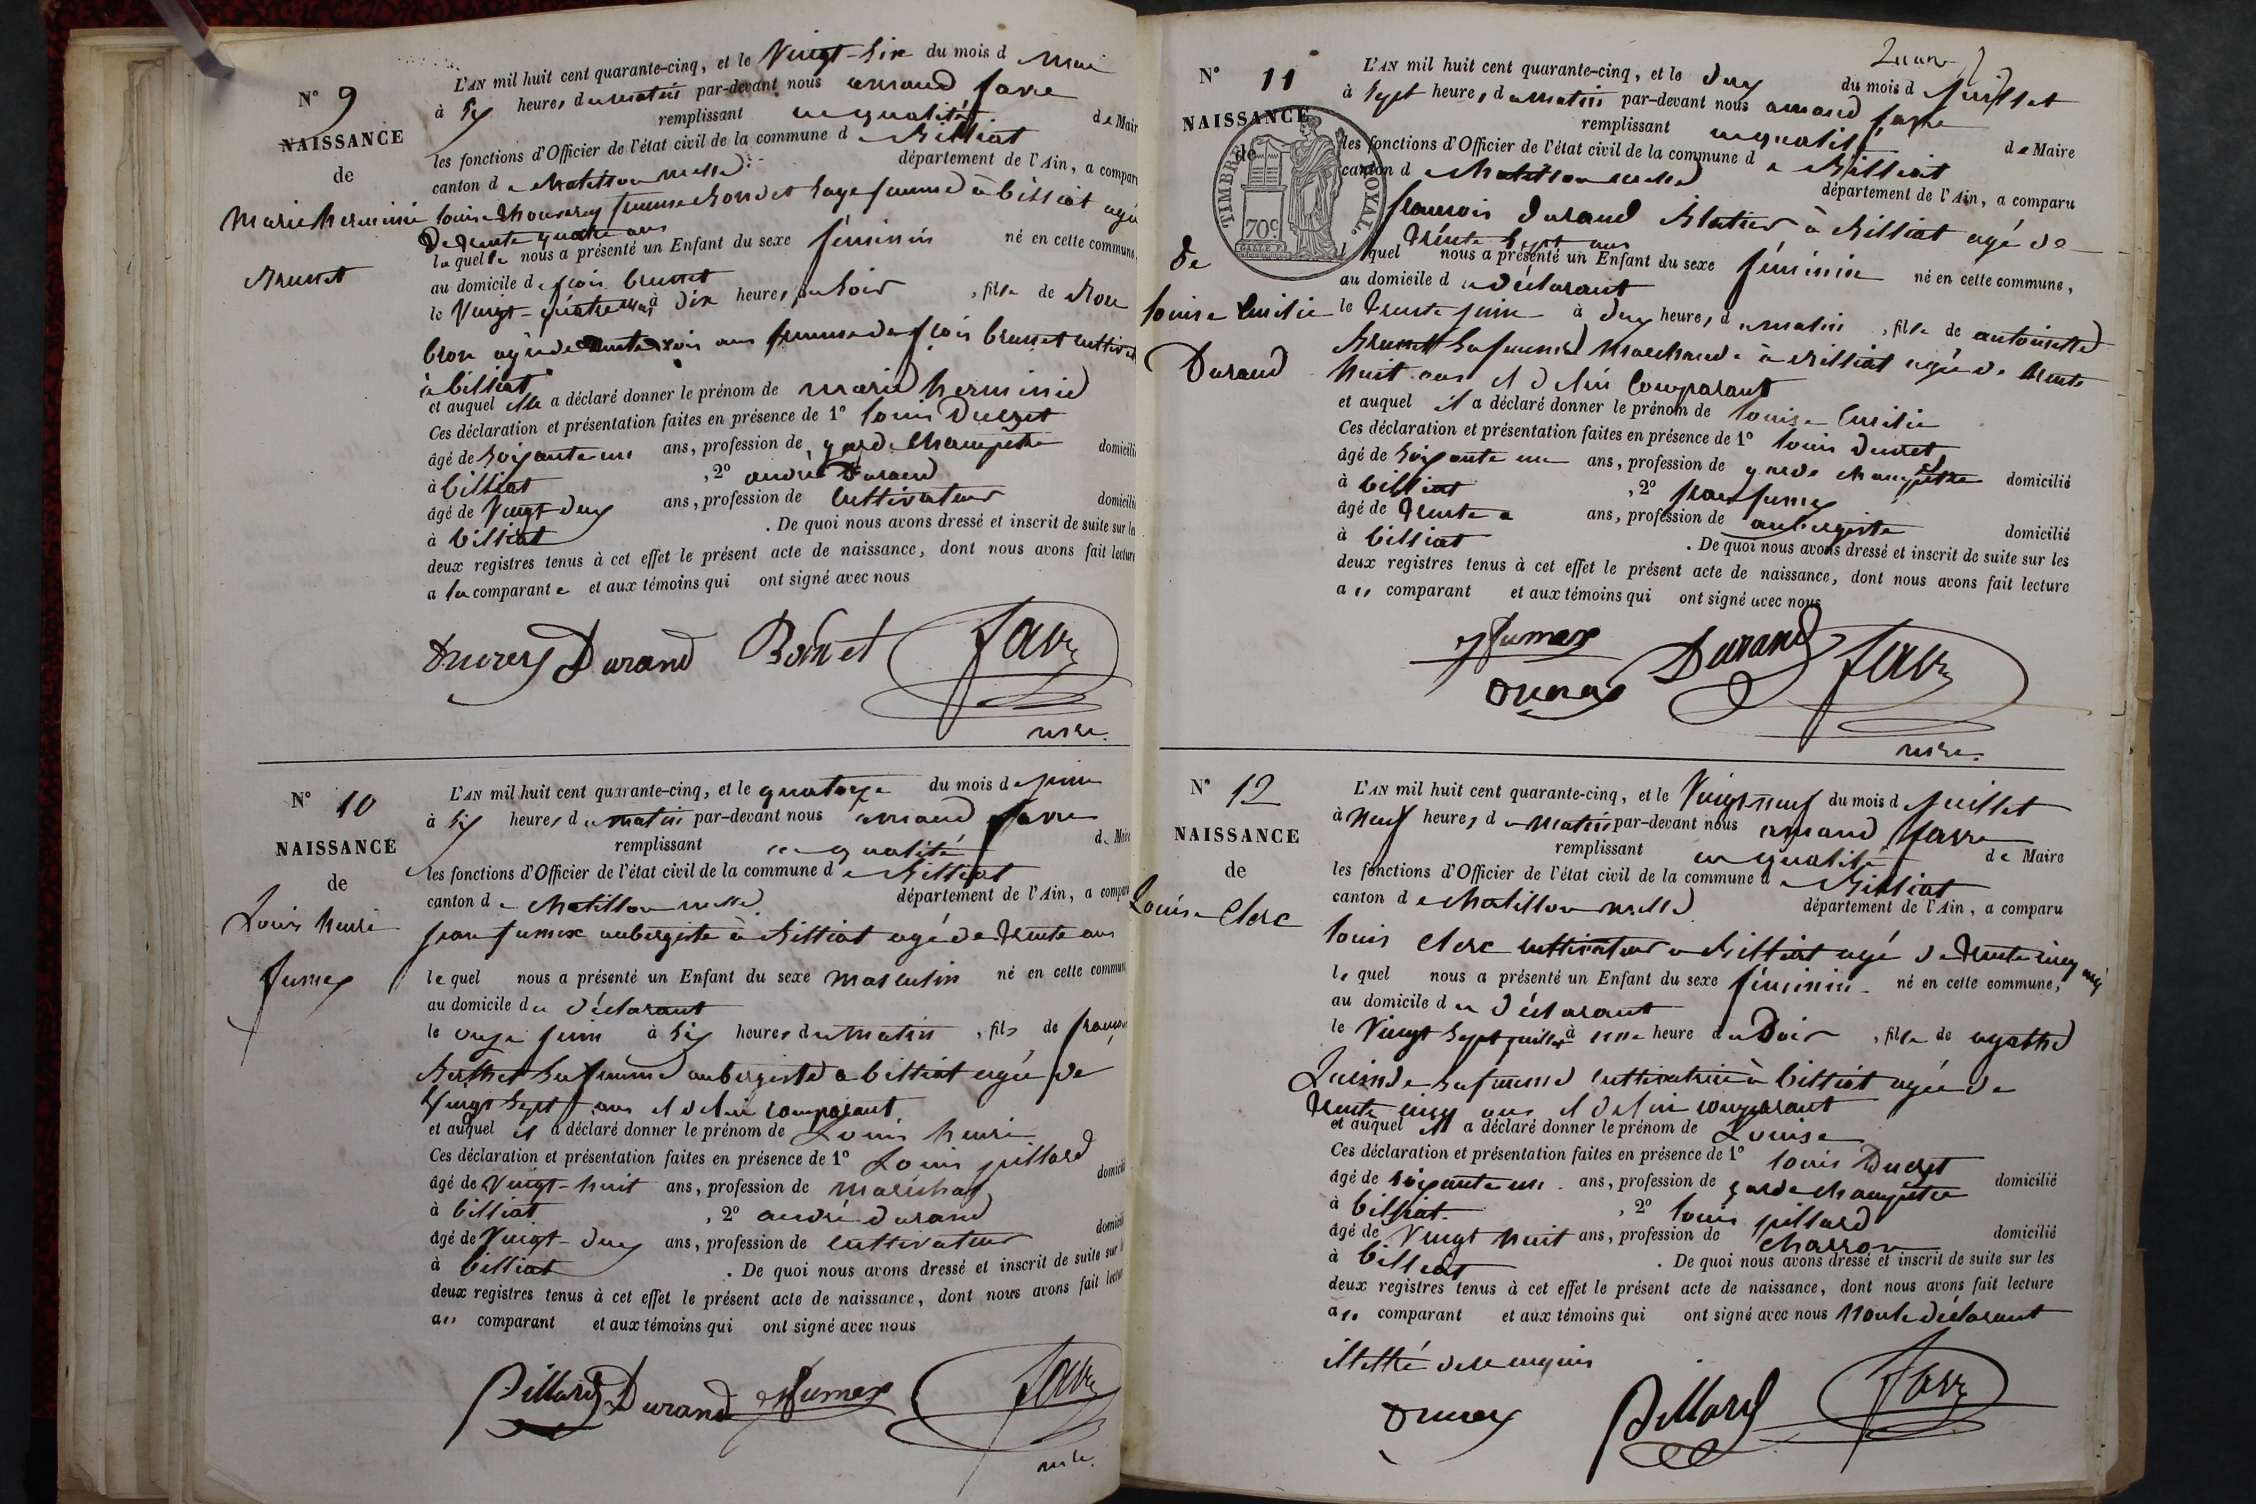 N° 9
NAISSANCE
de
Marie herminie
Brunet
L'AN mil huit cent quarante-cinq, et le Vingt-Six du mois d mai
à Six heures du matin par-devant nous armand favre
remplissant en qualité de Maire
les fonctions d'Officier de l'état civil de la commune de Billiat
canton de Chatillon
département de l'Ain, a comparu
louise femme Bondet Sage femme à billiat agée
De trente quatre ans
laquelle nous a présenté un Enfant du sexe féminin né en cette commune,
au domicile de fçois brunet
le Vingt-quatre mai à dix heures du Soir, fille de
agée de trente trois ans femme de fçois brunet
à billiat
et auquel elle a déclaré donner le prénom de marie herminie
Ces déclaration et présentation faites en présence de 1° louis Ducret
âgé de Soixante un ans, profession de garde Champêtre domicilié
à billiat, 2° andré Durand
âgé de Vingt-deux ans, profession de Cultivateur domicilié
à billiat. De quoi nous avons dressé et inscrit de suite sur les
deux registres tenus à cet effet le présent acte de naissance, dont nous avons fait lecture
a la comparante et aux témoins qui ont signé avec nous
Ducret Durand Bondet Favre
mre.
N° 10
NAISSANCE
de
Louis henri
fumex
L'AN mil huit cent quarante-cinq, et le quatorze du mois de juin
à Six heures du matin par-devant nous armand favre
remplissant en qualité de Maire
les fonctions d'Officier de l'état civil de la commune de Billiat
canton de Chatillon
département de l'Ain, a comparu
jean fumex aubergiste à Billiat agé de trente ans
lequel nous a présenté un Enfant du sexe masculin né en cette commune
au domicile du déclarant
le onze juin à Six heures du matin, fils de
Berthet Sa femme aubergiste a billiat agée de
Vingt Sept ans et de lui comparant
et auquel il a déclaré donner le prénom de Louis henri
Ces déclaration et présentation faites en présence de 1° Louis pillard
âgé de Vingt-huit ans, profession de maréchal domicilié
à billiat, 2° andré durand
âgé de Vingt-deux ans, profession de cultivateur domicilié
à billiat. De quoi nous avons dressé et inscrit de suite sur les
deux registres tenus à cet effet le présent acte de naissance, dont nous avons fait lecture
au comparant et aux témoins qui ont signé avec nous
Pillard Durand Jfumex Favre
mre.
N° 11
NAISSANCE
de
TIMBRE ROYAL
70c
de
louise Emilie
Durand
L'AN mil huit cent quarante-cinq, et le deux du mois de juillet
à Sept heures du matin par-devant nous armand favre
remplissant en qualité de Maire
les fonctions d'Officier de l'état civil de la commune de Billiat
canton de Chatillon
département de l'Ain, a comparu
francois durand à Billiat agé de
trente Sept ans
lequel nous a présenté un Enfant du sexe féminin né en cette commune,
au domicile du déclarant
le trente juin à deux heures du matin, fille de antoinette
Brunet Sa femme marchande à Billiat agée de trente
huit ans et de lui Comparant
et auquel il a déclaré donner le prénom de louise Emilie
Ces déclaration et présentation faites en présence de 1° louis ducret
âgé de Soixante un ans, profession de garde champêtre domicilié
à billiat, 2° jean fumex
âgé de trente ans, profession de aubergiste domicilié
à billiat. De quoi nous avons dressé et inscrit de suite sur les
deux registres tenus à cet effet le présent acte de naissance, dont nous avons fait lecture
au comparant et aux témoins qui ont signé avec nous
Jfumex Durand Favre
Ducret
mre.
N° 12
NAISSANCE
de
Louise Clerc
L'AN mil huit cent quarante-cinq, et le Vingt-neuf du mois de juillet
à Neuf heures du matin par-devant nous armand favre
remplissant en qualité de Maire
les fonctions d'Officier de l'état civil de la commune de Billiat
canton de Chatillon
département de l'Ain, a comparu
louis Clerc cultivateur a Billiat agé de trente cinq ans
lequel nous a présenté un Enfant du sexe féminin né en cette commune,
au domicile du déclarant
le Vingt Sept juillet à une heure du Soir, fille de agathe
Sa femme cultivatrice à billiat agée de
trente cinq ans et de lui comparant
et auquel il a déclaré donner le prénom de Louise
Ces déclaration et présentation faites en présence de 1° louis Ducret
âgé de soixante un ans, profession de garde champêtre domicilié
à billiat, 2° louis pillard
âgé de Vingt huit ans, profession de Charron domicilié
à billiat. De quoi nous avons dressé et inscrit de suite sur les
deux registres tenus à cet effet le présent acte de naissance, dont nous avons fait lecture
au comparant et aux témoins qui ont signé avec nous Non le déclarant
illettré de ce enquis
Ducret Pillard Favre